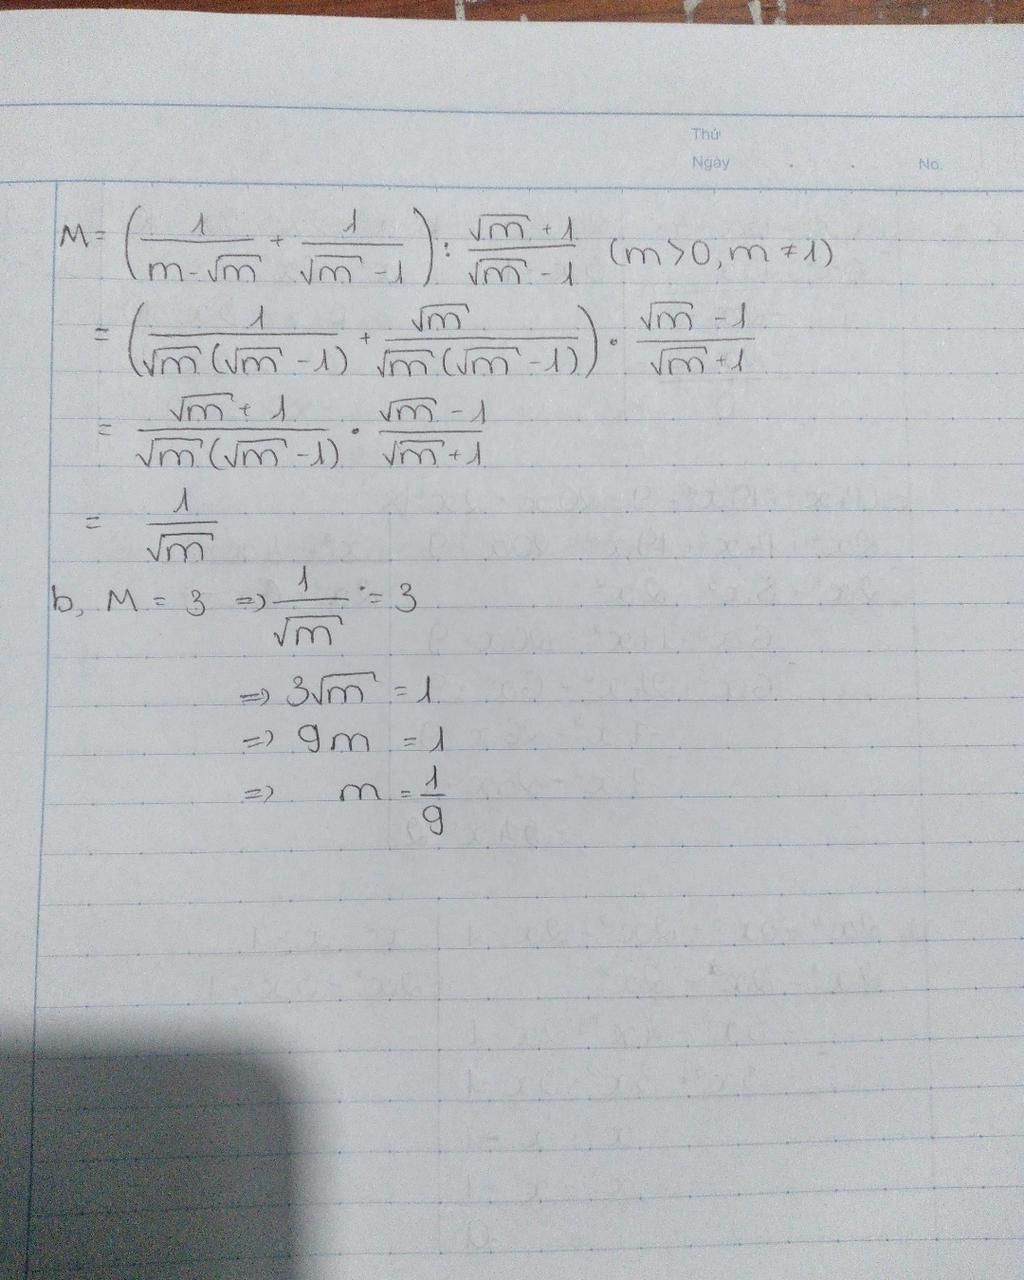 Thứ
Ngày . . No.
M = (1/(m-√m) + 1/(√m -1)) : (√m +1)/(√m -1) (m>0, m≠1)
= (1/(√m(√m -1)) + √m/(√m(√m -1))) · (√m -1)/(√m +1)
= (√m + 1)/(√m(√m -1)) · (√m -1)/(√m +1)
= 1/√m
b, M = 3 => 1/√m = 3
=> 3√m = 1
=> 9m = 1
=> m = 1/9